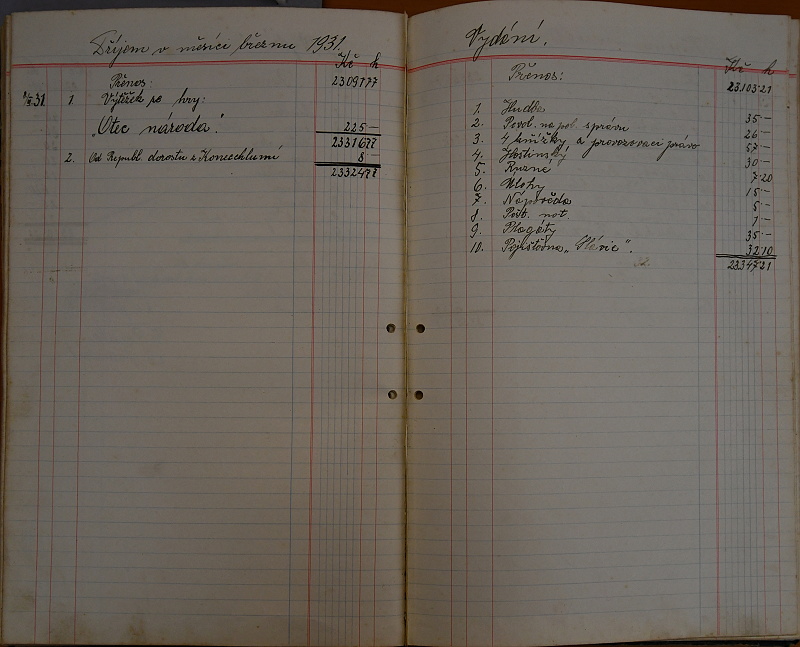 Příjem v měsíci březnu 1931.
Kč h
Přenos: 2309777
31. 1. Výtěžek po hry:
„Otec národa". 225 —
2331677
2. Od Republ. dorostu z Konecchlumí 8 —
2332477
Vydání.
Kč h
Přenos: 23.103 21
1. Hudba 35 —
2. Povol. na pol. správu 26 —
3. 4 knížky a provozovací právo 57 —
4. Hostinský 30 —
5. Různé 7 20
6. Úlohy 15 —
7. Nápověda 5 —
8. Pošt. not. 1 —
9. Plagáty 35 —
10. Pojišťovna „Slavie". 32 10
23.347 21